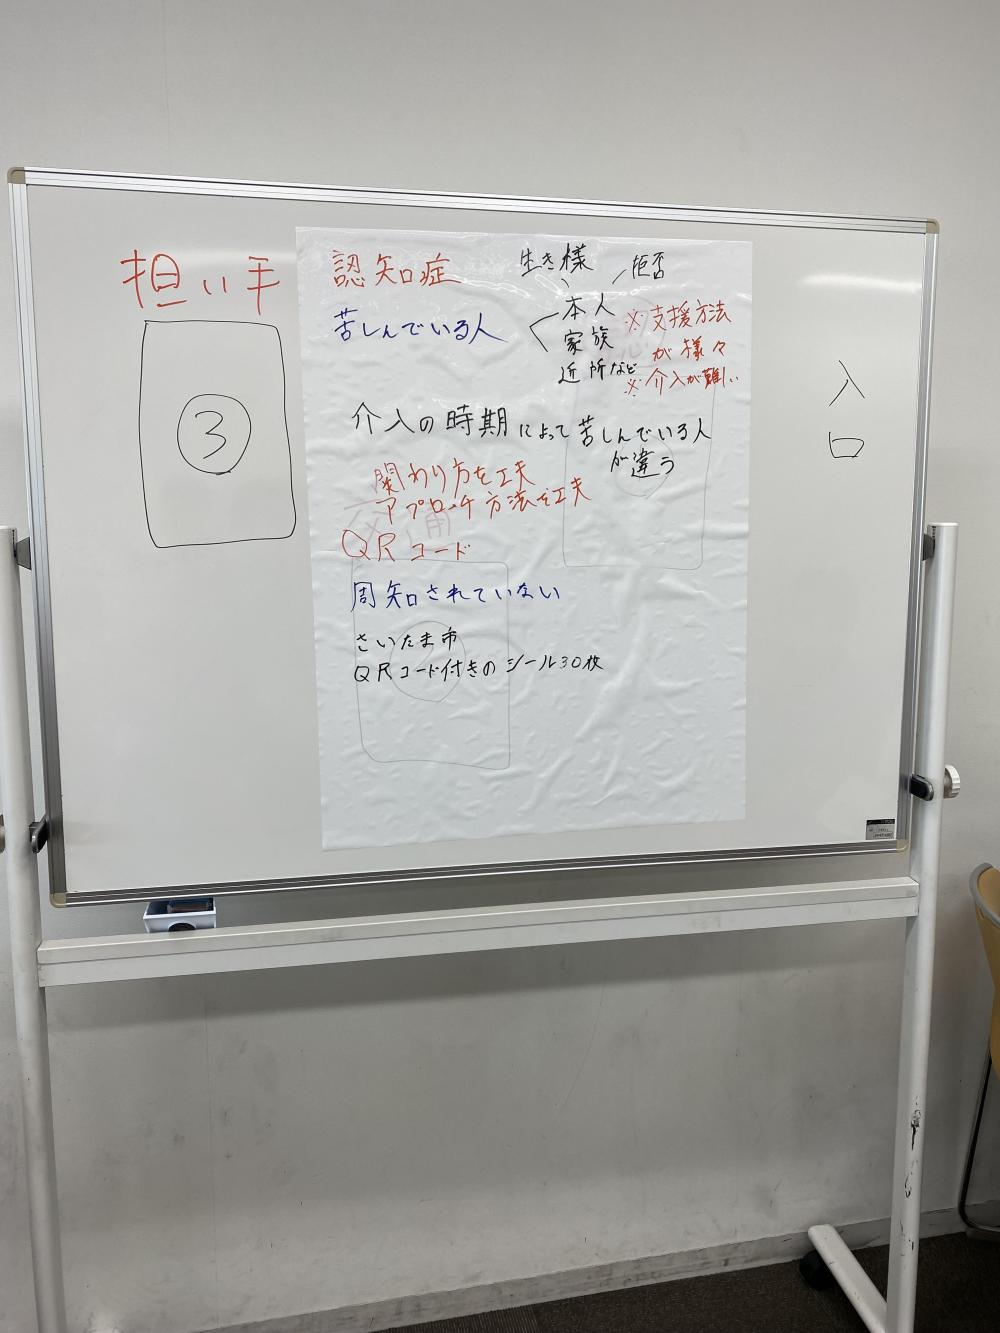 担い手
③
認知症
苦しんでいる人
生き様
拒否
本人
家族
近所など
※支援方法
が様々
※介入が難しい
介入の時期によって苦しんでいる人
が違う
関わり方を工夫
アプローチ方法を工夫
QRコード
周知されていない
さいたま市
QRコード付きのシール30枚
交通
②
入
口